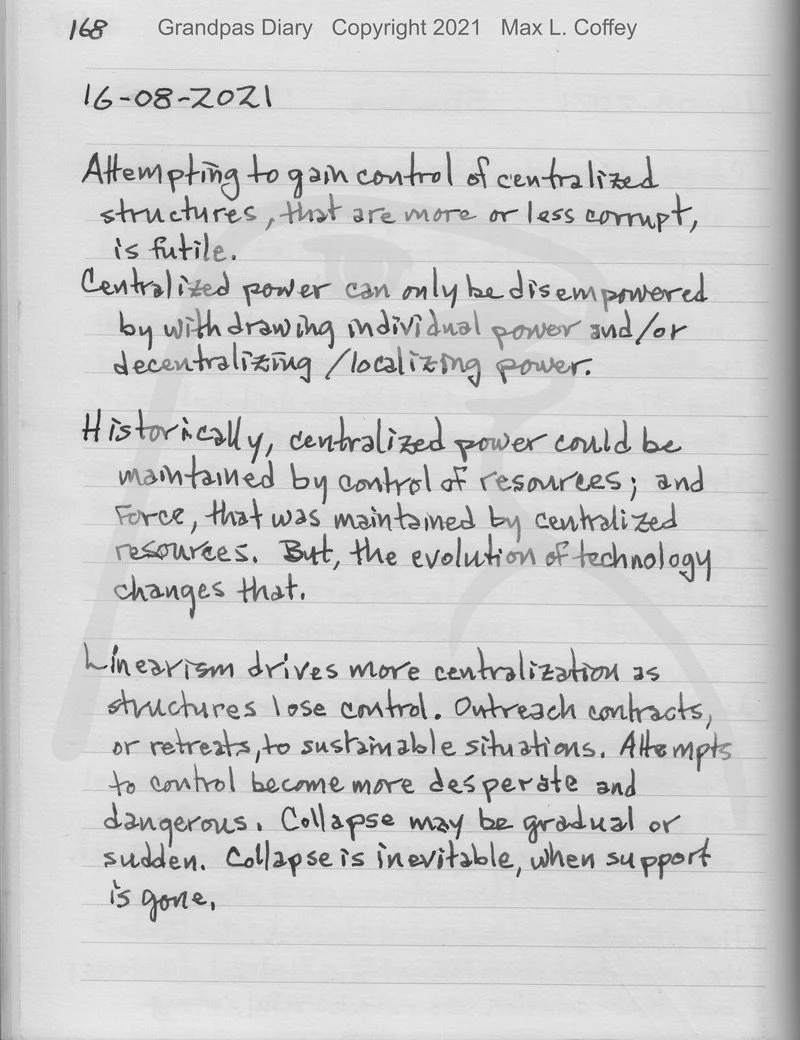 168 Grandpas Diary Copyright 2021 Max L. Coffey
16-08-2021
Attempting to gain control of centralized
structures, that are more or less corrupt,
is futile.
Centralized power can only be disempowered
by withdrawing individual power and/or
decentralizing /localizing power.
Historically, centralized power could be
maintained by control of resources; and
Force, that was maintained by centralized
resources. But, the evolution of technology
changes that.
Linearism drives more centralization as
structures lose control. Outreach contracts,
or retreats, to sustainable situations. Attempts
to control become more desperate and
dangerous. Collapse may be gradual or
sudden. Collapse is inevitable, when support
is gone.